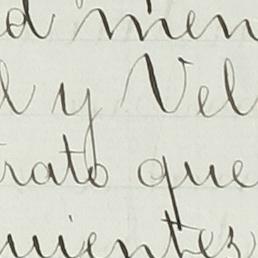 d men
l y Vel
rato que
mientes